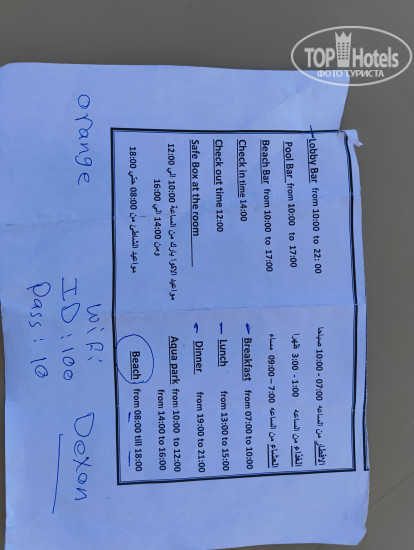 TOP Hotels
ФОТО ТУРИСТА
Lobby Bar from 10:00 to 22:00
Pool Bar from 10:00 to 17:00
Beach Bar from 10:00 to 17:00
Check in time 14:00
Check out time 12:00
Safe Box at the room
مواعيد الاكوا بارك من الساعة 10:00 الي 12:00
ومن 14:00 الي 16:00
مواعيد الشاطئ من 08:00 حتي 18:00
الافطار من الساعه 07:00 - 10:00 صباحا
الغذاء من الساعه 1:00 - 3:00 ظهرا
العشاء من الساعه 7:00 – 09:00 مساء
Breakfast from 07:00 to 10:00
Lunch from 13:00 to 15:00
Dinner from 19:00 to 21:00
Aqua park from 10:00 to 12:00
from 14:00 to 16:00
Beach from 08:00 till 18:00
orange
WiFi Dexon
ID:100
Pass:10